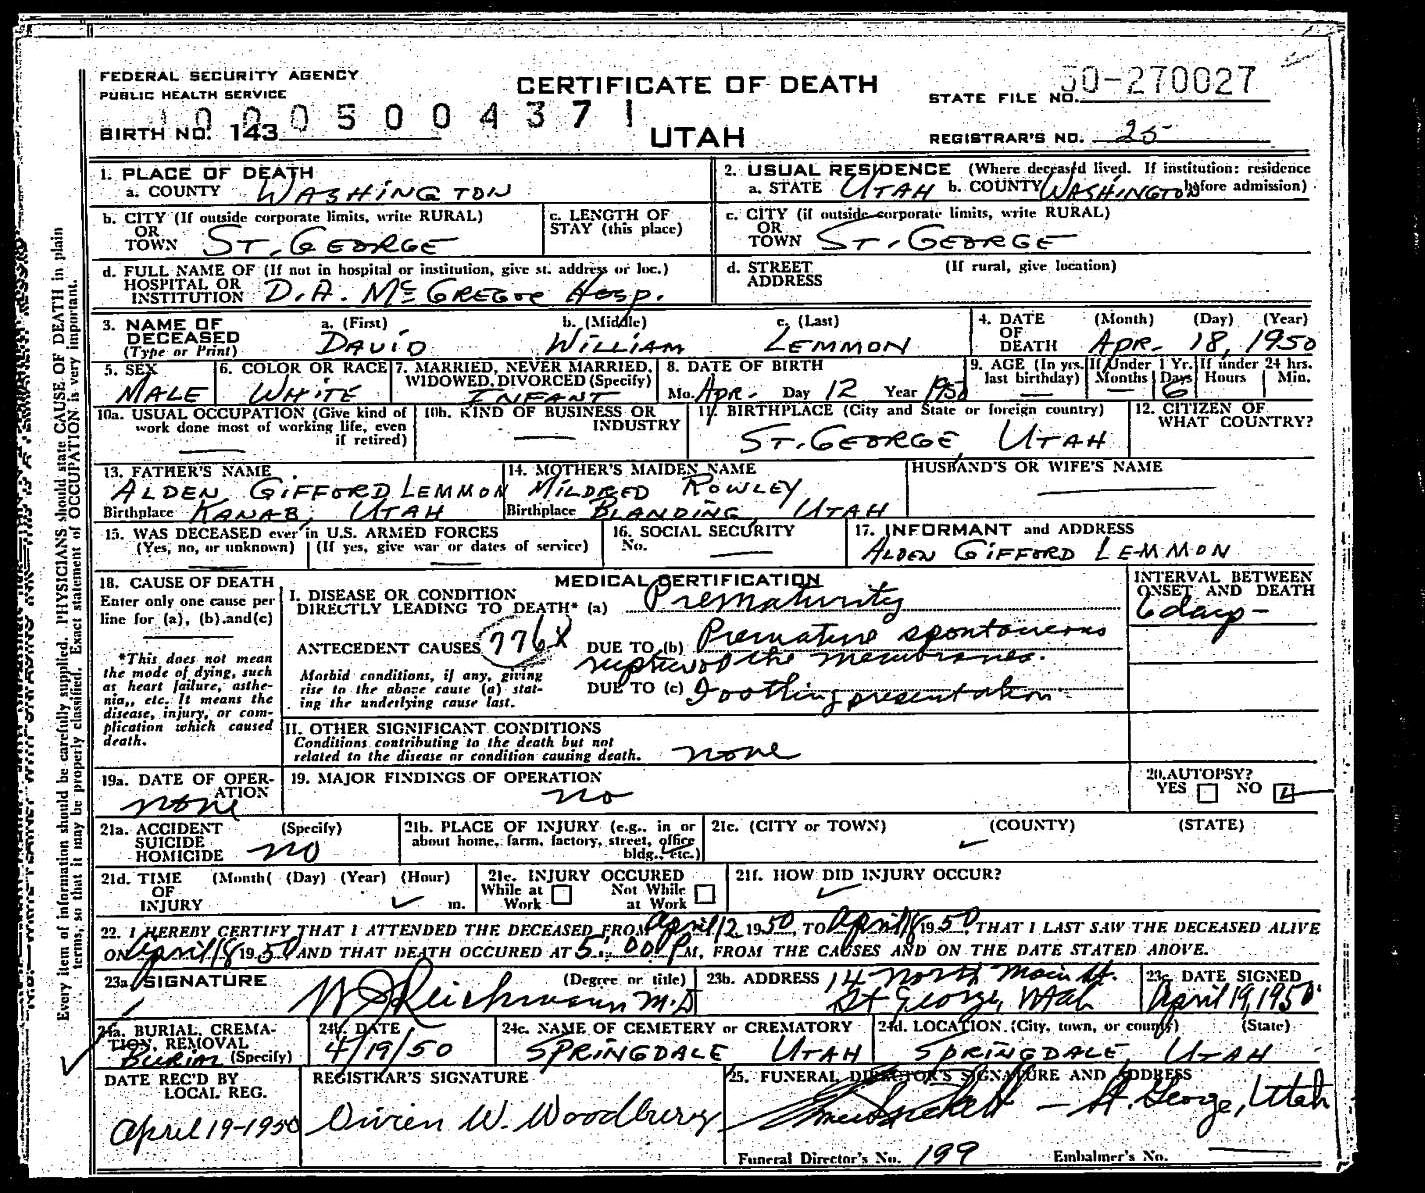 FEDERAL SECURITY AGENCY
PUBLIC HEALTH SERVICE
CERTIFICATE OF DEATH
UTAH
STATE FILE NO. 50-270027
BIRTH NO. 143 0005004371
REGISTRAR'S NO. 25
1. PLACE OF DEATH
a. COUNTY WASHINGTON
2. USUAL RESIDENCE (Where deceased lived. If institution: residence before admission)
a. STATE UTAH b. COUNTY WASHINGTON
b. CITY (If outside corporate limits, write RURAL)
OR
TOWN ST. GEORGE
c. LENGTH OF
STAY (this place)
c. CITY (if outside corporate limits, write RURAL)
OR
TOWN ST. GEORGE
d. FULL NAME OF (If not in hospital or institution, give st. address or loc.)
HOSPITAL OR
INSTITUTION D.A. McGREGOR HOSP.
d. STREET (If rural, give location)
ADDRESS
3. NAME OF
DECEASED
(Type or Print)
a. (First) DAVID
b. (Middle) WILLIAM
c. (Last) LEMMON
4. DATE (Month) (Day) (Year)
OF
DEATH APR. 18, 1950
5. SEX
MALE
6. COLOR OR RACE
WHITE
7. MARRIED, NEVER MARRIED,
WIDOWED, DIVORCED (Specify)
INFANT
8. DATE OF BIRTH
Mo. APR. Day 12 Year 1950
9. AGE (In yrs. last birthday) —
If Under 1 Yr. Months — Days 6
If under 24 hrs. Hours Min.
10a. USUAL OCCUPATION (Give kind of
work done most of working life, even
if retired) —
10b. KIND OF BUSINESS OR
INDUSTRY —
11. BIRTHPLACE (City and State or foreign country)
ST. GEORGE, UTAH
12. CITIZEN OF
WHAT COUNTRY?
13. FATHER'S NAME
ALDEN GIFFORD LEMMON
Birthplace KANAB, UTAH
14. MOTHER'S MAIDEN NAME
MILDRED ROWLEY
Birthplace BLANDING, UTAH
HUSBAND'S OR WIFE'S NAME
—
15. WAS DECEASED ever in U.S. ARMED FORCES
(Yes, no, or unknown) (If yes, give war or dates of service)
— —
16. SOCIAL SECURITY
No. —
17. INFORMANT and ADDRESS
ALDEN GIFFORD LEMMON
18. CAUSE OF DEATH
Enter only one cause per
line for (a), (b) and (c)
*This does not mean
the mode of dying, such
as heart failure, asthe-
nia,, etc. It means the
disease, injury, or com-
plication which caused
death.
MEDICAL CERTIFICATION
I. DISEASE OR CONDITION
DIRECTLY LEADING TO DEATH* (a) Prematurity
INTERVAL BETWEEN
ONSET AND DEATH
6 days -
ANTECEDENT CAUSES 776X
DUE TO (b) Premature spontaneous
rupture of the membranes.
Morbid conditions, if any, giving
rise to the above cause (a) stat-
ing the underlying cause last.
DUE TO (c) Footling presentation
II. OTHER SIGNIFICANT CONDITIONS
Conditions contributing to the death but not
related to the disease or condition causing death. none
19a. DATE OF OPER-
ATION
none
19. MAJOR FINDINGS OF OPERATION
no
20. AUTOPSY?
YES NO
21a. ACCIDENT (Specify)
SUICIDE
HOMICIDE no
21b. PLACE OF INJURY (e.g., in or
about home, farm, factory, street, office
bldg., etc.)
21c. (CITY or TOWN) (COUNTY) (STATE)
21d. TIME (Month( (Day) (Year) (Hour)
OF
INJURY m.
21e. INJURY OCCURED
While at Work Not While at Work
21f. HOW DID INJURY OCCUR?
22. I HEREBY CERTIFY THAT I ATTENDED THE DECEASED FROM April 12 1950, TO April 18 1950, THAT I LAST SAW THE DECEASED ALIVE
ON April 18 1950 AND THAT DEATH OCCURED AT 5:00 P M, FROM THE CAUSES AND ON THE DATE STATED ABOVE.
23a. SIGNATURE (Degree or title)
W J Reichmann M.D
23b. ADDRESS 14 North Main St.
St George, Utah
23c. DATE SIGNED
April 19, 1950
24a. BURIAL, CREMA-
TION, REMOVAL
BURIAL (Specify)
24b. DATE
4/19/50
24c. NAME OF CEMETERY or CREMATORY
SPRINGDALE UTAH
24d. LOCATION (City, town, or county) (State)
SPRINGDALE, UTAH
DATE REC'D BY
LOCAL REG.
April 19-1950
REGISTRAR'S SIGNATURE
Vivien W. Woodbury
25. FUNERAL DIRECTOR'S SIGNATURE AND ADDRESS
— St. George, Utah
Funeral Director's No. 199
Embalmer's No. —
Every item of information should be carefully supplied. PHYSICIANS should state CAUSE OF DEATH in plain
terms, so that it may be properly classified. Exact statement of OCCUPATION is very important.